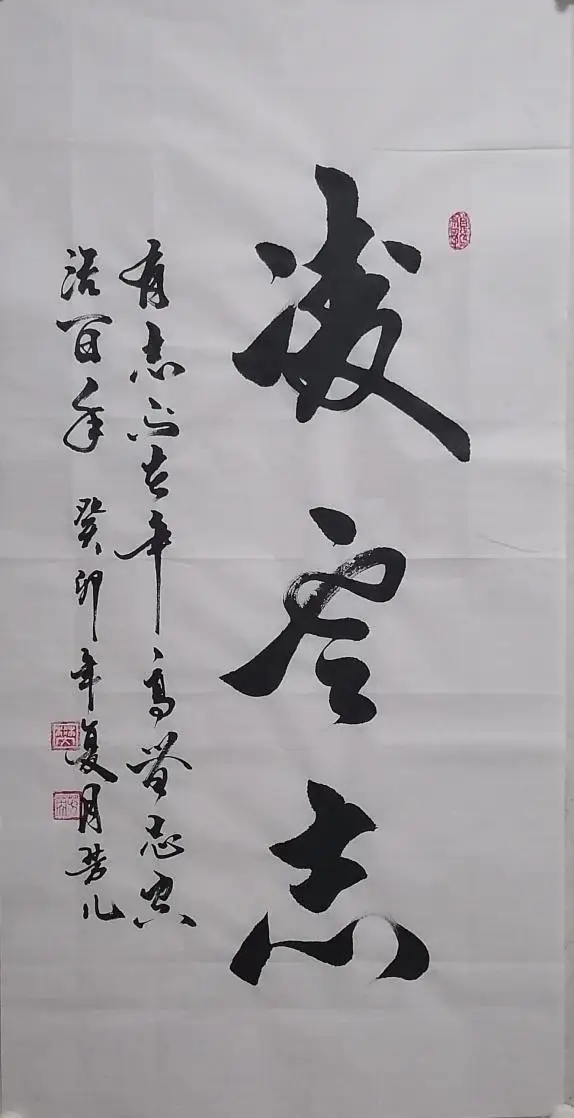 凌雲志
有志不在年高無志空
活百年 癸卯年夏月